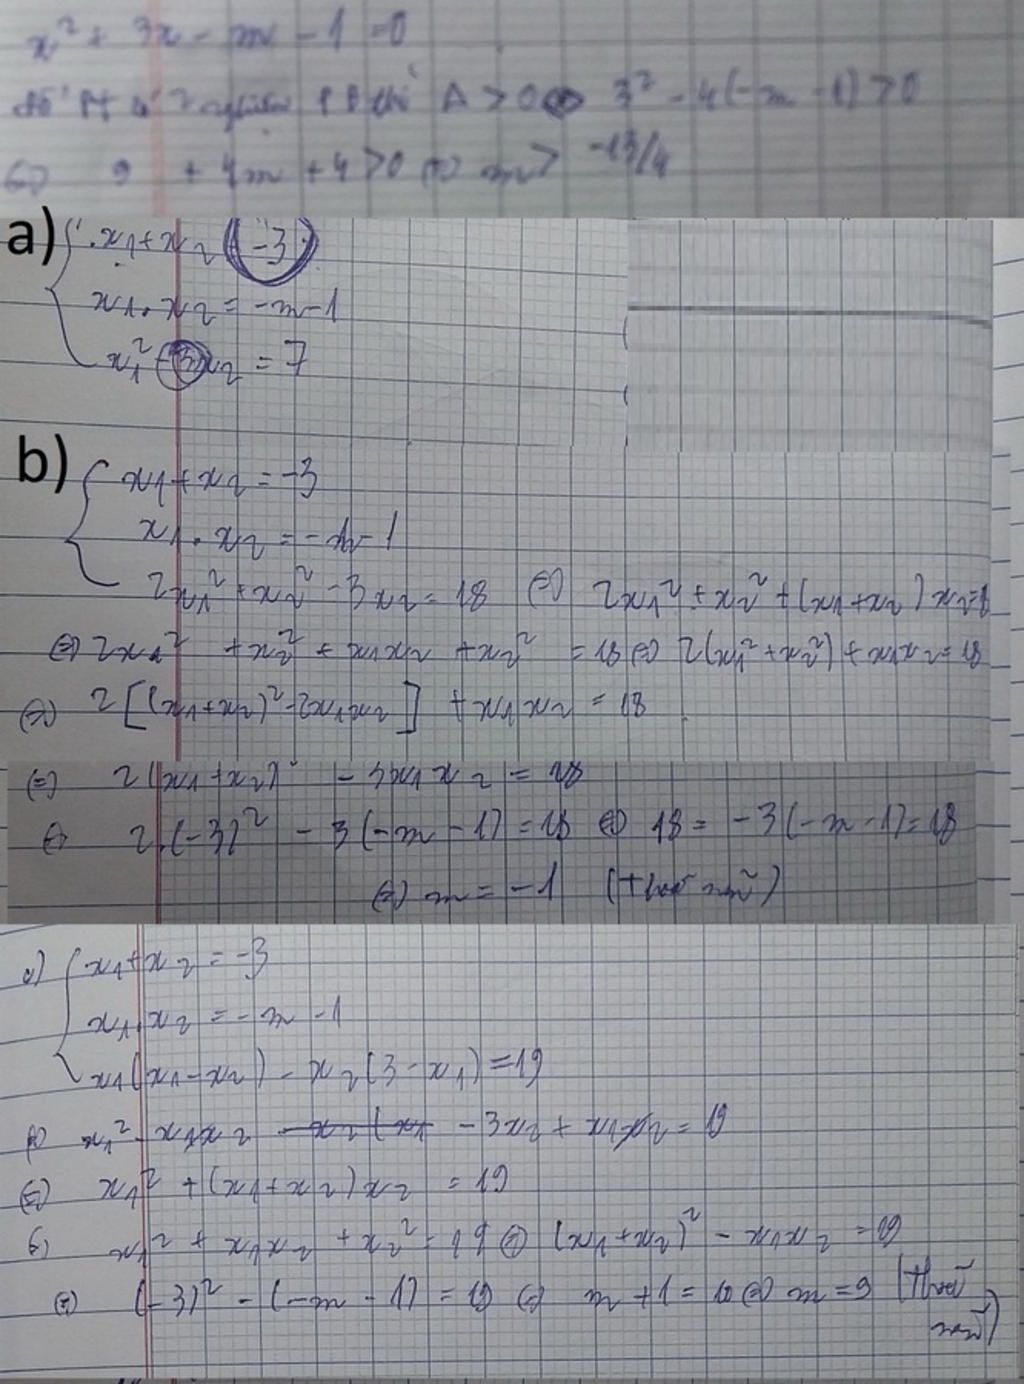 x² + 3x - m - 1 = 0
Để Pt có 2 nghiệm PB thì Δ > 0 ⇔ 3² - 4(-m - 1) > 0
⇔ 9 + 4m + 4 > 0 ⇔ m > -13/4
a) { x₁ + x₂ = -3
x₁ . x₂ = -m - 1
x₁² - 3x₂ = 7
b) { x₁ + x₂ = -3
x₁ . x₂ = -m - 1
2x₁² + x₂² - 3x₂ = 18 ⇔ 2x₁² + x₂² + (x₁ + x₂) x₂ = 18
⇔ 2x₁² + x₂² + x₁x₂ + x₂² = 18 ⇔ 2(x₁² + x₂²) + x₁x₂ = 18
⇔ 2[(x₁ + x₂)² - 2x₁x₂] + x₁x₂ = 18
⇔ 2(x₁ + x₂)² - 3x₁x₂ = 18
⇔ 2.(-3)² - 3(-m - 1) = 18 ⇔ 18 = -3(-m - 1) = 18
⇔ m = -1 (thoả mãn)
c) { x₁ + x₂ = -3
x₁ . x₂ = -m - 1
x₁(x₁ - x₂) - x₂(3 - x₁) = 19
⇔ x₁² - x₁x₂ - 3x₂ + x₁x₂ = 19
⇔ x₁² + (x₁ + x₂) x₂ = 19
⇔ x₁² + x₁x₂ + x₂² = 19 ⇔ (x₁ + x₂)² - x₁x₂ = 19
⇔ (-3)² - (-m - 1) = 19 ⇔ m + 1 = 10 ⇔ m = 9 (thoả
mãn)